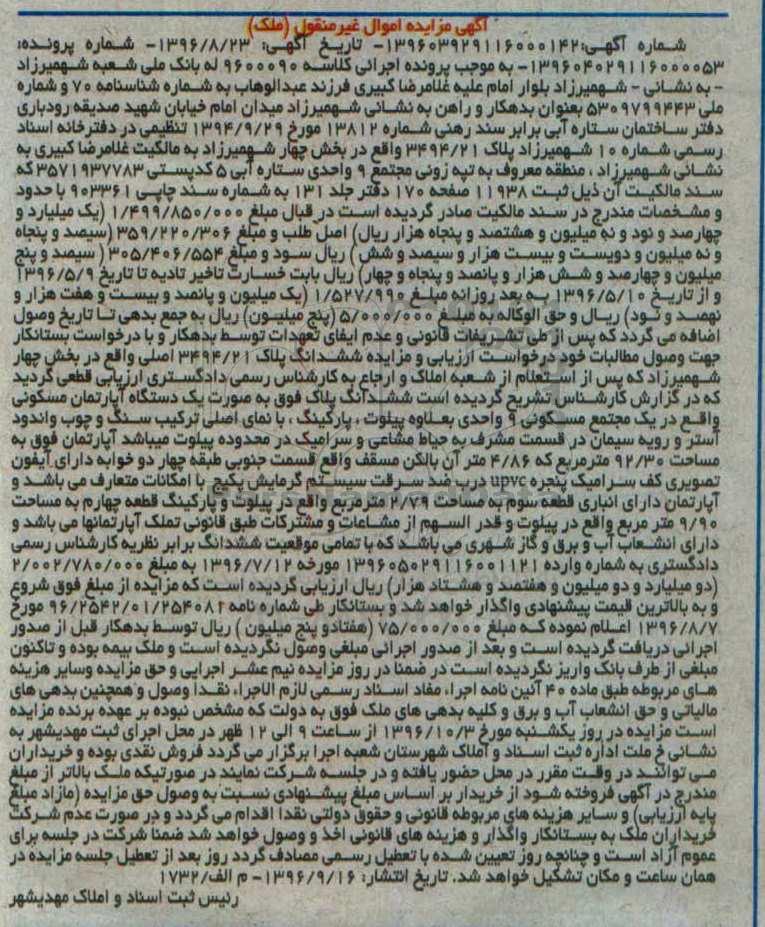 آگهی مزایده اموال غیرمنقول (ملک)
شماره آگهی:۱۳۹۶۰۳۹۲۹۱۱۶۰۰۰۱۴۲- تاریخ آگهی: ۱۳۹۶/۸/۲۳- شماره پرونده:
۱۳۹۶۰۴۰۲۹۱۱۶۰۰۰۰۵۳- به موجب پرونده اجرائی کلاسه ۹۶۰۰۰۹۰ له بانک ملی شعبه شهمیرزاد
- به نشانی - شهمیرزاد بلوار امام علیه غلامرضا کبیری فرزند عبدالوهاب به شماره شناسنامه ۷۰ و شماره
ملی ۵۳۰۹۷۹۹۴۴۳ بعنوان بدهکار و راهن به نشانی شهمیرزاد میدان امام خیابان شهید صدیقه رودباری
دفتر ساختمان ستاره آبی برابر سند رهنی شماره ۱۳۸۱۲ مورخ ۱۳۹۴/۹/۲۹ تنظیمی در دفترخانه اسناد
رسمی شماره ۱۰ شهمیرزاد پلاک ۳۴۹۴/۲۱ واقع در بخش چهار شهمیرزاد به مالکیت غلامرضا کبیری به
نشانی شهمیرزاد ، منطقه معروف به تپه زونی مجتمع ۹ واحدی ستاره آبی ۵ کدپستی ۳۵۷۱۹۳۷۷۸۳ که
سند مالکیت آن ذیل ثبت ۱۱۹۳۸ صفحه ۱۷۰ دفتر جلد ۱۳۱ به شماره سند چاپی ۹۰۳۳۶۱ با حدود
و مشخصات مندرج در سند مالکیت صادر گردیده است در قبال مبلغ ۱/۴۹۹/۸۵۰/۰۰۰ (یک میلیارد و
چهارصد و نود و نه میلیون و هشتصد و پنجاه هزار ریال) اصل طلب و مبلغ ۳۵۹/۲۲۰/۳۰۶ (سیصد و پنجاه
و نه میلیون و دویست و بیست هزار و سیصد و شش ) ریال سود و مبلغ ۳۰۵/۴۰۶/۵۵۴ ( سیصد و پنج
میلیون و چهارصد و شش هزار و پانصد و پنجاه و چهار) ریال بابت خسارت تاخیر تادیه تا تاریخ ۱۳۹۶/۵/۹
و از تاریخ ۱۳۹۶/۵/۱۰ به بعد روزانه مبلغ ۱/۵۲۷/۹۹۰ (یک میلیون و پانصد و بیست و هفت هزار و
نهصد و نود) ریال و حق الوکاله به مبلغ ۵/۰۰۰/۰۰۰ (پنج میلیون) ریال به جمع بدهی تا تاریخ وصول
اضافه می گردد که پس از طی تشریفات قانونی و عدم ایفای تعهدات توسط بدهکار و با درخواست بستانکار
جهت وصول مطالبات خود درخواست ارزیابی و مزایده ششدانگ پلاک ۳۴۹۴/۲۱ اصلی واقع در بخش چهار
شهمیرزاد که پس از استعلام از شعبه املاک و ارجاع به کارشناس رسمی دادگستری ارزیابی قطعی گردید
که در گزارش کارشناس تشریح گردیده است ششدانگ پلاک فوق به صورت یک دستگاه آپارتمان مسکونی
واقع در یک مجتمع مسکونی ۹ واحدی بعلاوه پیلوت ، پارکینگ ، با نمای اصلی ترکیب سنگ و چوب واندود
آستر و رویه سیمان در قسمت مشرف به حیاط مشاعی و سرامیک در محدوده پیلوت میباشد آپارتمان فوق به
مساحت ۹۲/۳۰ مترمربع که ۴/۸۶ متر آن بالکن مسقف واقع قسمت جنوبی طبقه چهار دو خوابه دارای آیفون
تصویری کف سرامیک پنجره upvc درب ضد سرقت سیستم گرمایش پکیج با امکانات متعارف می باشد و
آپارتمان دارای انباری قطعه سوم به مساحت ۲/۷۹ مترمربع واقع در پیلوت و پارکینگ قطعه چهارم به مساحت
۹/۹۰ متر مربع واقع در پیلوت و قدر السهم از مشاعات و مشترکات طبق قانونی تملک آپارتمانها می باشد و
دارای انشعاب آب و برق و گاز شهری می باشد که با تمامی موقعیت ششدانگ برابر نظریه کارشناس رسمی
دادگستری به شماره وارده ۱۳۹۶۰۵۰۲۹۱۱۶۰۰۱۱۲۱ مورخه ۱۳۹۶/۷/۱۲ به مبلغ ۲/۰۰۲/۷۸۰/۰۰۰
(دو میلیارد و دو میلیون و هفتصد و هشتاد هزار) ریال ارزیابی گردیده است که مزایده از مبلغ فوق شروع
و به بالاترین قیمت پیشنهادی واگذار خواهد شد و بستانکار طی شماره نامه ۹۶/۲۵۴۲/۰۱/۲۵۴۰۸۱ مورخ
۱۳۹۶/۸/۷ اعلام نموده که مبلغ ۷۵/۰۰۰/۰۰۰ (هفتادو پنج میلیون ) ریال توسط بدهکار قبل از صدور
اجرائی دریافت گردیده است و بعد از صدور اجرائی مبلغی وصول نگردیده است و ملک بیمه بوده و تاکنون
مبلغی از طرف بانک واریز نگردیده است در ضمنا در روز مزایده نیم عشر اجرایی و حق مزایده وسایر هزینه
های مربوطه طبق ماده ۴۰ آئین نامه اجراء مفاد اسناد رسمی لازم الاجراء نقدا وصول و همچنین بدهی های
مالیاتی و حق انشعاب آب و برق و کلیه بدهی های ملک فوق به دولت که مشخص نبوده بر عهده برنده مزایده
است مزایده در روز یکشنبه مورخ ۱۳۹۶/۱۰/۳ از ساعت ۹ الی ۱۲ ظهر در محل اجرای ثبت مهدیشهر به
نشانی خ ملت اداره ثبت اسناد و املاک شهرستان شعبه اجرا برگزار می گردد فروش نقدی بوده و خریداران
می توانند در وقت مقرر در محل حضور یافته و در جلسه شرکت نمایند در صورتیکه ملک بالاتر از مبلغ
مندرج در آگهی فروخته شود از خریدار بر اساس مبلغ پیشنهادی نسبت به وصول حق مزایده (مازاد مبلغ
پایه ارزیابی) و سایر هزینه های مربوطه قانونی و حقوق دولتی نقدا اقدام می گردد و در صورت عدم شرکت
خریداران ملک به بستانکار واگذار و هزینه های قانونی اخذ و وصول خواهد شد ضمنا شرکت در جلسه برای
عموم آزاد است و چنانچه روز تعیین شده با تعطیل رسمی مصادف گردد روز بعد از تعطیل جلسه مزایده در
همان ساعت و مکان تشکیل خواهد شد. تاریخ انتشار: ۱۳۹۶/۹/۱۶- م الف/۱۷۳۲
رئیس ثبت اسناد و املاک مهدیشهر